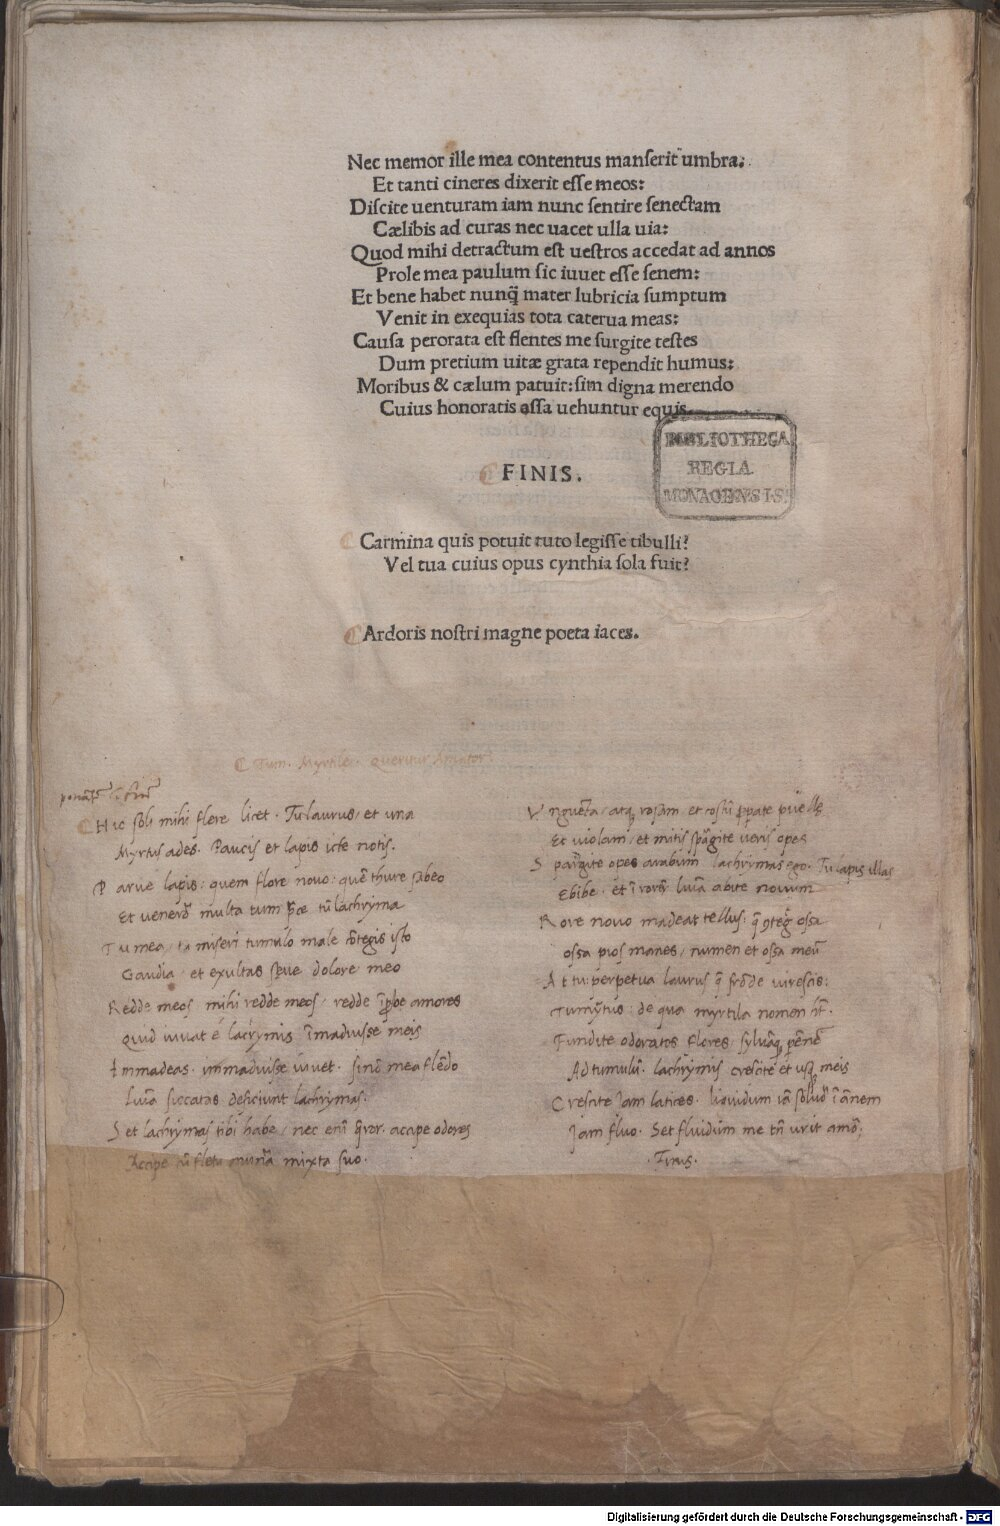 Nec memor ille mea contentus manſerit umbra:
Et tanti cineres dixerit eſſe meos:
Diſcite uenturam iam nunc ſentire ſenectam
Cælibis ad curas nec uacet ulla uia:
Quod mihi detractum eſt ueſtros accedat ad annos
Prole mea paulum ſic iuuet eſſe ſenem:
Et bene habet nunq̃ mater lubricia ſumptum
Venit in exequias tota caterua meas:
Cauſa perorata eſt flentes me ſurgite teſtes
Dum pretium uitæ grata rependit humus:
Moribus & cælum patuit: ſim digna merendo
Cuius honoratis oſſa uehuntur equis.
BIBLIOTHECA
REGIA
MONACENSIS.
FINIS.
Carmina quis potuit tuto legiſſe tibulli?
Vel tua cuius opus cynthia ſola fuit?
Ardoris noſtri magne poeta iaces.
Tum. Myrtile. queritur Amator
Hic ſoli mihi flere licet. Tu laurus, et una
Myrtus ades. Paucis et lapis icte notis.
Parue lapis: quem flore nouo: quē thure ſabeo
Et veneror multa tum lachryma
Tu mea, ta miseri tumulo male cōtegis iſto
Gaudia, et exultas dolore meo
Redde meos mihi redde meos, redde īprobe amores
Quid iuuat ē lachrymis īmaduiſſe meis
Immadeas. immaduiſſe iuuet. mea flēdo
Lumīa ſiccatas deficiunt lachrymas.
Set lachrymas tibi habe, nec enī q̄ror. accipe odores
Accipe cū fletu munīa mixta ſuo.
Vnguēta, atq, roſam et coſtū ꝓperate puelle
Et violam, et mitis ſpārgite veris opes
Spargite opes arabum lachrymas ego. Tu lapis illas
Ebibe. et ī rorē lumīa abite nouum
Rore nouo madeat tellus: q̄ ꝯtegit oſſa
oſſa pios manes, numen et oſſa meū
At tu: perpetua laurus q̄ frōde vireſcis:
Tu myrtus: de qua myrtila nomen hēt.
Fundite odoratos flores, ſyluāq,
Ad tumulū. lachrymis creſcite et vſq, meis
Creſcite Jam latices. liquidum iā ſoluor ī amnem
Jam fluo. Set fluidum me tn̄ vrit amor.
. Finis.
Digitalisierung gefördert durch die Deutsche Forschungsgemeinschaft - DFG